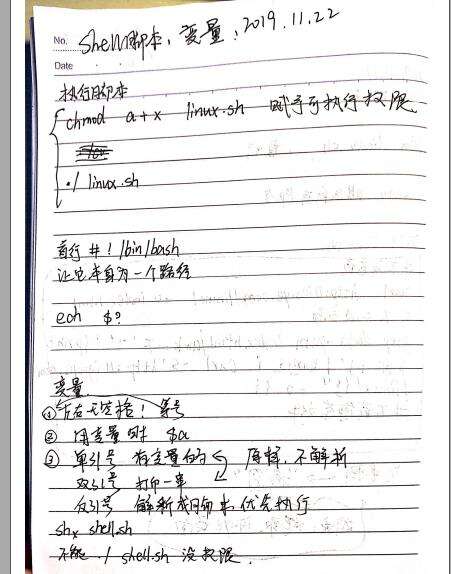 No. Shell脚本、变量、2019.11.22
Date
执行脚本
chmod a+x linux.sh 赋予可执行权限
./ linux.sh
首行 #! /bin/bash
让它本身为一个路径
ech $?
变量
① 左右无空格! 等号
② 用变量时 $a
③ 单引号 有变量的 原样,不解析
双引号 打印一串
反引号 解析成 优先执行
shx shell.sh
不能 ./ shell.sh 没权限.